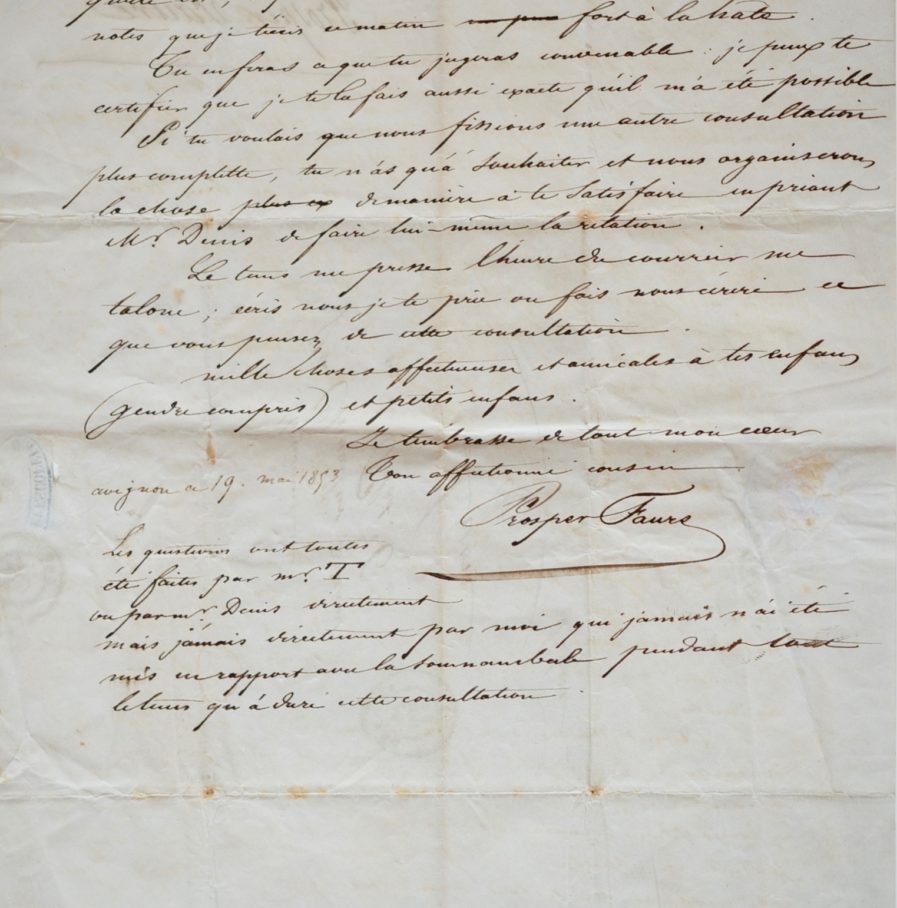 notes que je tiens ce matin fort à la hate.
Tu en feras ce que tu jugeras convenable : je peux te
certifier que je te la fais aussi exacte qu'il m'a été possible
Si tu voulais que nous fissions une autre consultation
plus complette, tu n'as qu'à souhaiter et nous organiserons
la chose plus ex de manière à te satisfaire en priant
Mr. Denis de faire lui-même la rélation.
Le tems me presse l'heure du courrier me
talone ; écris nous je te prie ou fais nous écrire ce
que vous pensez de cette consultation.
mille choses affectueuses et amicales à tes enfans
(gendre compris) et petits enfans.
Je t'embrasse de tout mon cœur
Ton affectionné cousin
avignon ce 19. mai 1853
Prosper Faure
Les questions ont toutes
été faites par mr. T
ou par mr. Denis directement
mais jamais directement par moi qui jamais n'ai été
mis en rapport avec la somnambule pendant tout
le tems qu'à duré cette consultation.